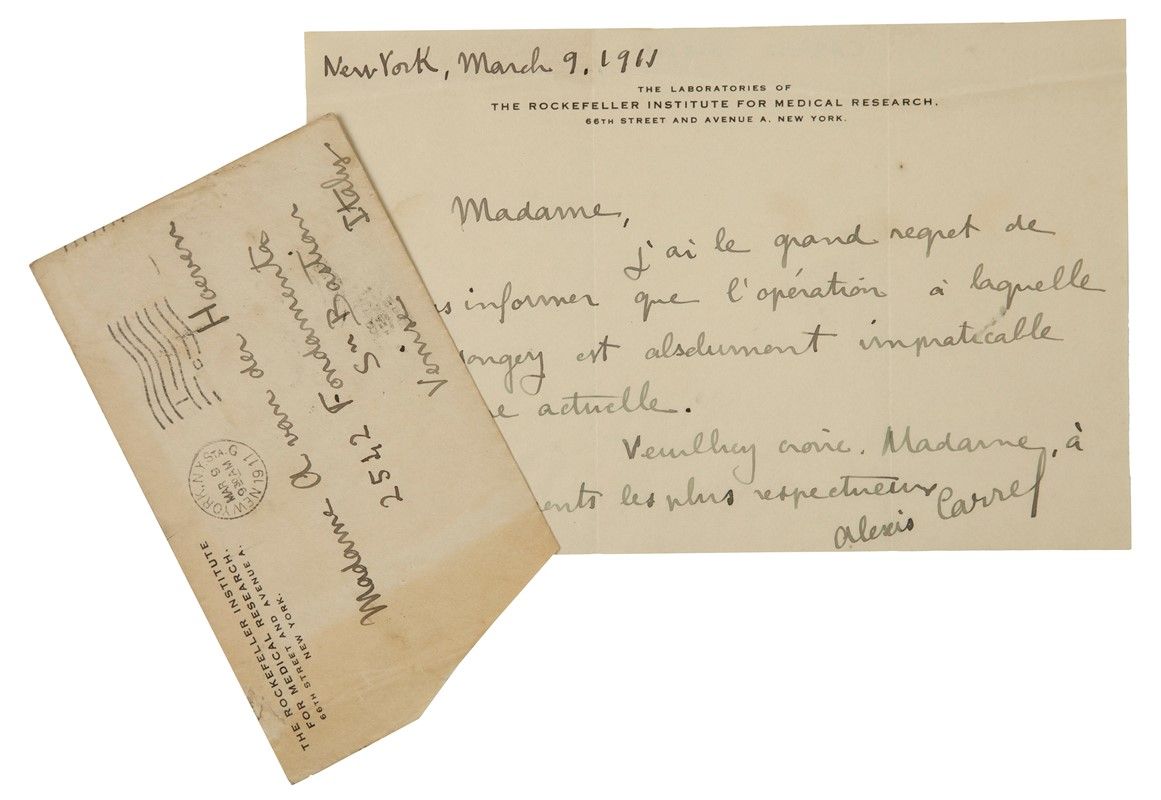 New York, March 9, 1911
THE LABORATORIES OF
THE ROCKEFELLER INSTITUTE FOR MEDICAL RESEARCH,
66TH STREET AND AVENUE A, NEW YORK.
Madame,
j'ai le grand regret de
s informer que l'opération à laquelle
songez est absolument impraticable
e actuelle.
Veuillez croire, Madame, à
ents les plus respectueux
Alexis Carrel
Madame A van der Haeven
2542 Fondamenta
San Bastian
Venise
Italy
NEW YORK, N.Y. STA. G
MAR 9
930AM
1911
THE ROCKEFELLER INSTITUTE
FOR MEDICAL RESEARCH.
66TH STREET AND AVENUE A.
NEW YORK.